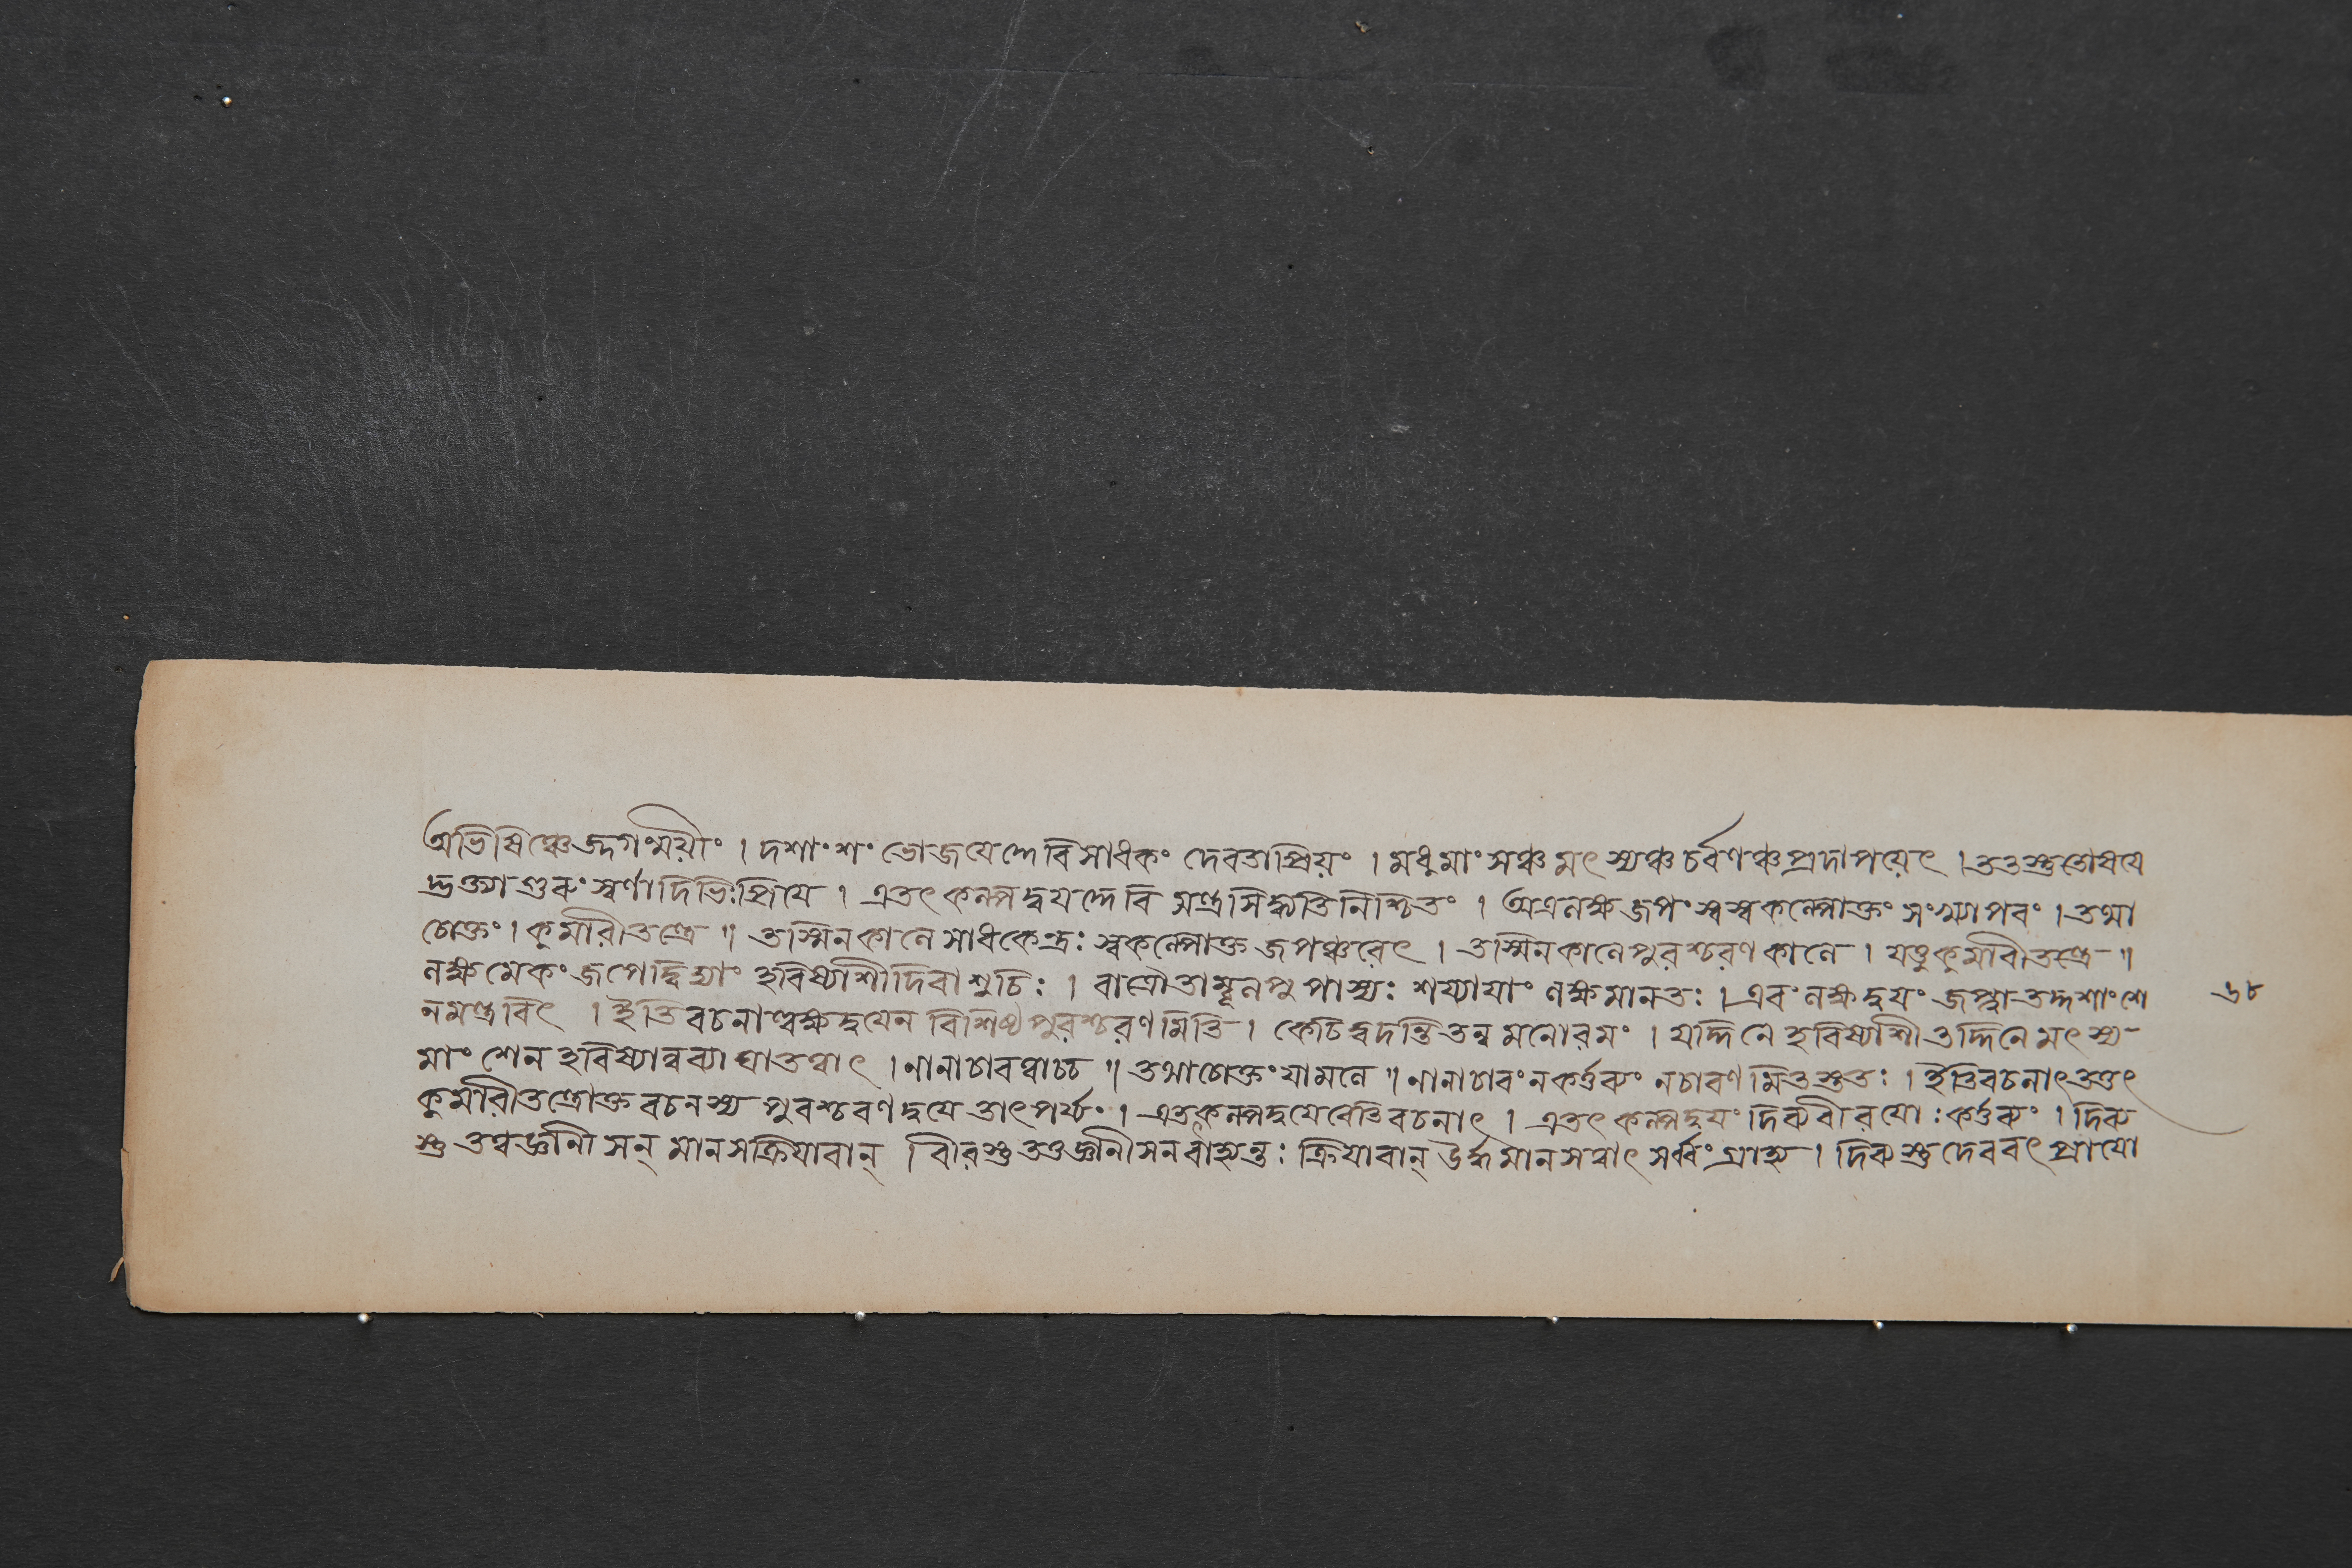 অভিষিঞ্চেজ্জগন্ময়ীং । দশাংশং ভোজয়েদ্দেবি সাধকং দেবতাপ্রিয়ং । মধুমাংসঞ্চ মৎস্যঞ্চ চর্বণঞ্চ প্রদাপয়েৎ । ততস্তু তোষয়ে
দ্ভক্ত্যা গুরুং স্বর্ণাদিভিঃ প্রিয়ে । এতৎ কল্পদ্বয়ন্দেবি মন্ত্রসিদ্ধ্যতি নিশ্চিতং । অত্র লক্ষজপং স্বস্বকল্পোক্তং সংখ্যাপরং । তথা
চোক্তং । কুমারীতন্ত্রে ॥ তস্মিনকালে সাধকেন্দ্রঃ স্বকল্পোক্ত জপঞ্চরেৎ । তস্মিনকালে পুরশ্চরণকালে । যত্তু কুমারীতন্ত্রে ॥
লক্ষমেকং জপেদ্বিদ্যাং হবিষ্যাশী দিবা শুচিঃ । রাত্রৌ তাম্বূলপূরাস্যঃ শয্যায়াং লক্ষমানতঃ । এবং লক্ষদ্বয়ং জপ্ত্বা তদ্দশাংশে
ন মন্ত্রবিৎ । ইতি বচনাল্লক্ষদ্বয়েন বিশিষ্ট পুরশ্চরণমিতি । কেচিদ্বদন্তি তন্ন মনোরমং । যদ্দিনে হবিষ্যাশী তদ্দিনে মৎস্য
মাংসেন হবিষ্যান্নব্যাঘাতত্বাৎ । নানাচারত্বাচ্চ ॥ তথাচোক্তং যামলে ॥ নানাচারং ন কর্ত্তব্যং ন চারণমিতস্ততঃ । ইতিবচনাৎ তত্তৎ
কুমারীতন্ত্রোক্ত বচনস্য পুরশ্চরণদ্বয়ে তাৎপর্য্যং । এতৎকল্পদ্বয়েবেতি বচনাৎ । এতৎ কল্পদ্বয়ং দিব্যবীরয়োঃ কর্ত্তব্যং । দিব্য
স্তু তত্ত্বজ্ঞানী সন্ মানসক্রিয়াবান্ । বীরস্তু তত্তজ্ঞানী সন বাহ্যন্তঃ ক্রিয়াবান্ মানসত্বাৎ সর্ব্বং গ্রাহ্য । দিব্যস্তু দেববৎ প্রায়ো
৬৮